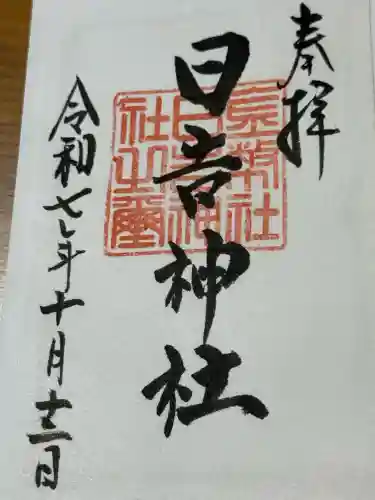 奉拝
日吉神社
幣社
日吉神
社之璽
令和七年十月十二日